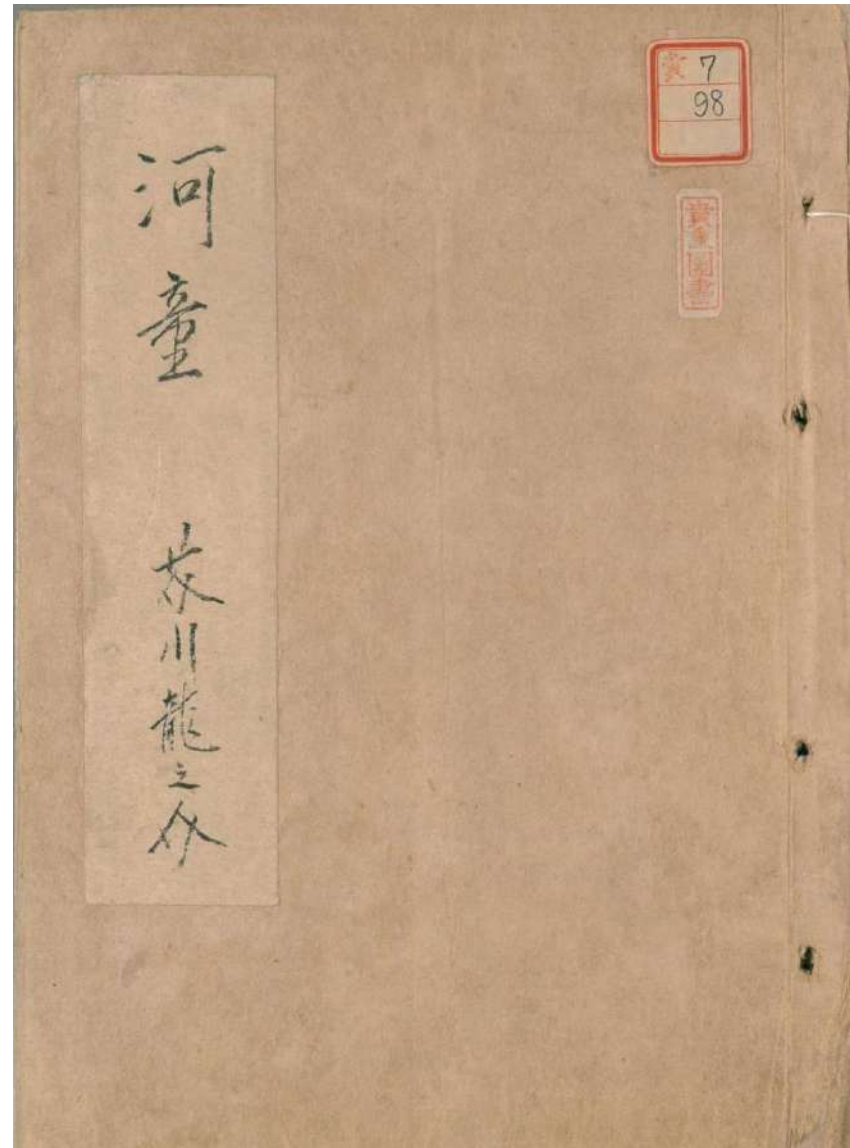 貴 7
98
貴重圖書
河童
芥川龍之介